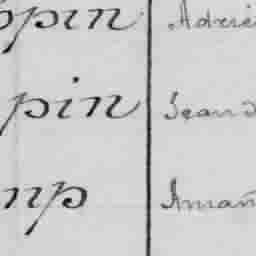 ppin Adrie
pin Jean
mp Aman